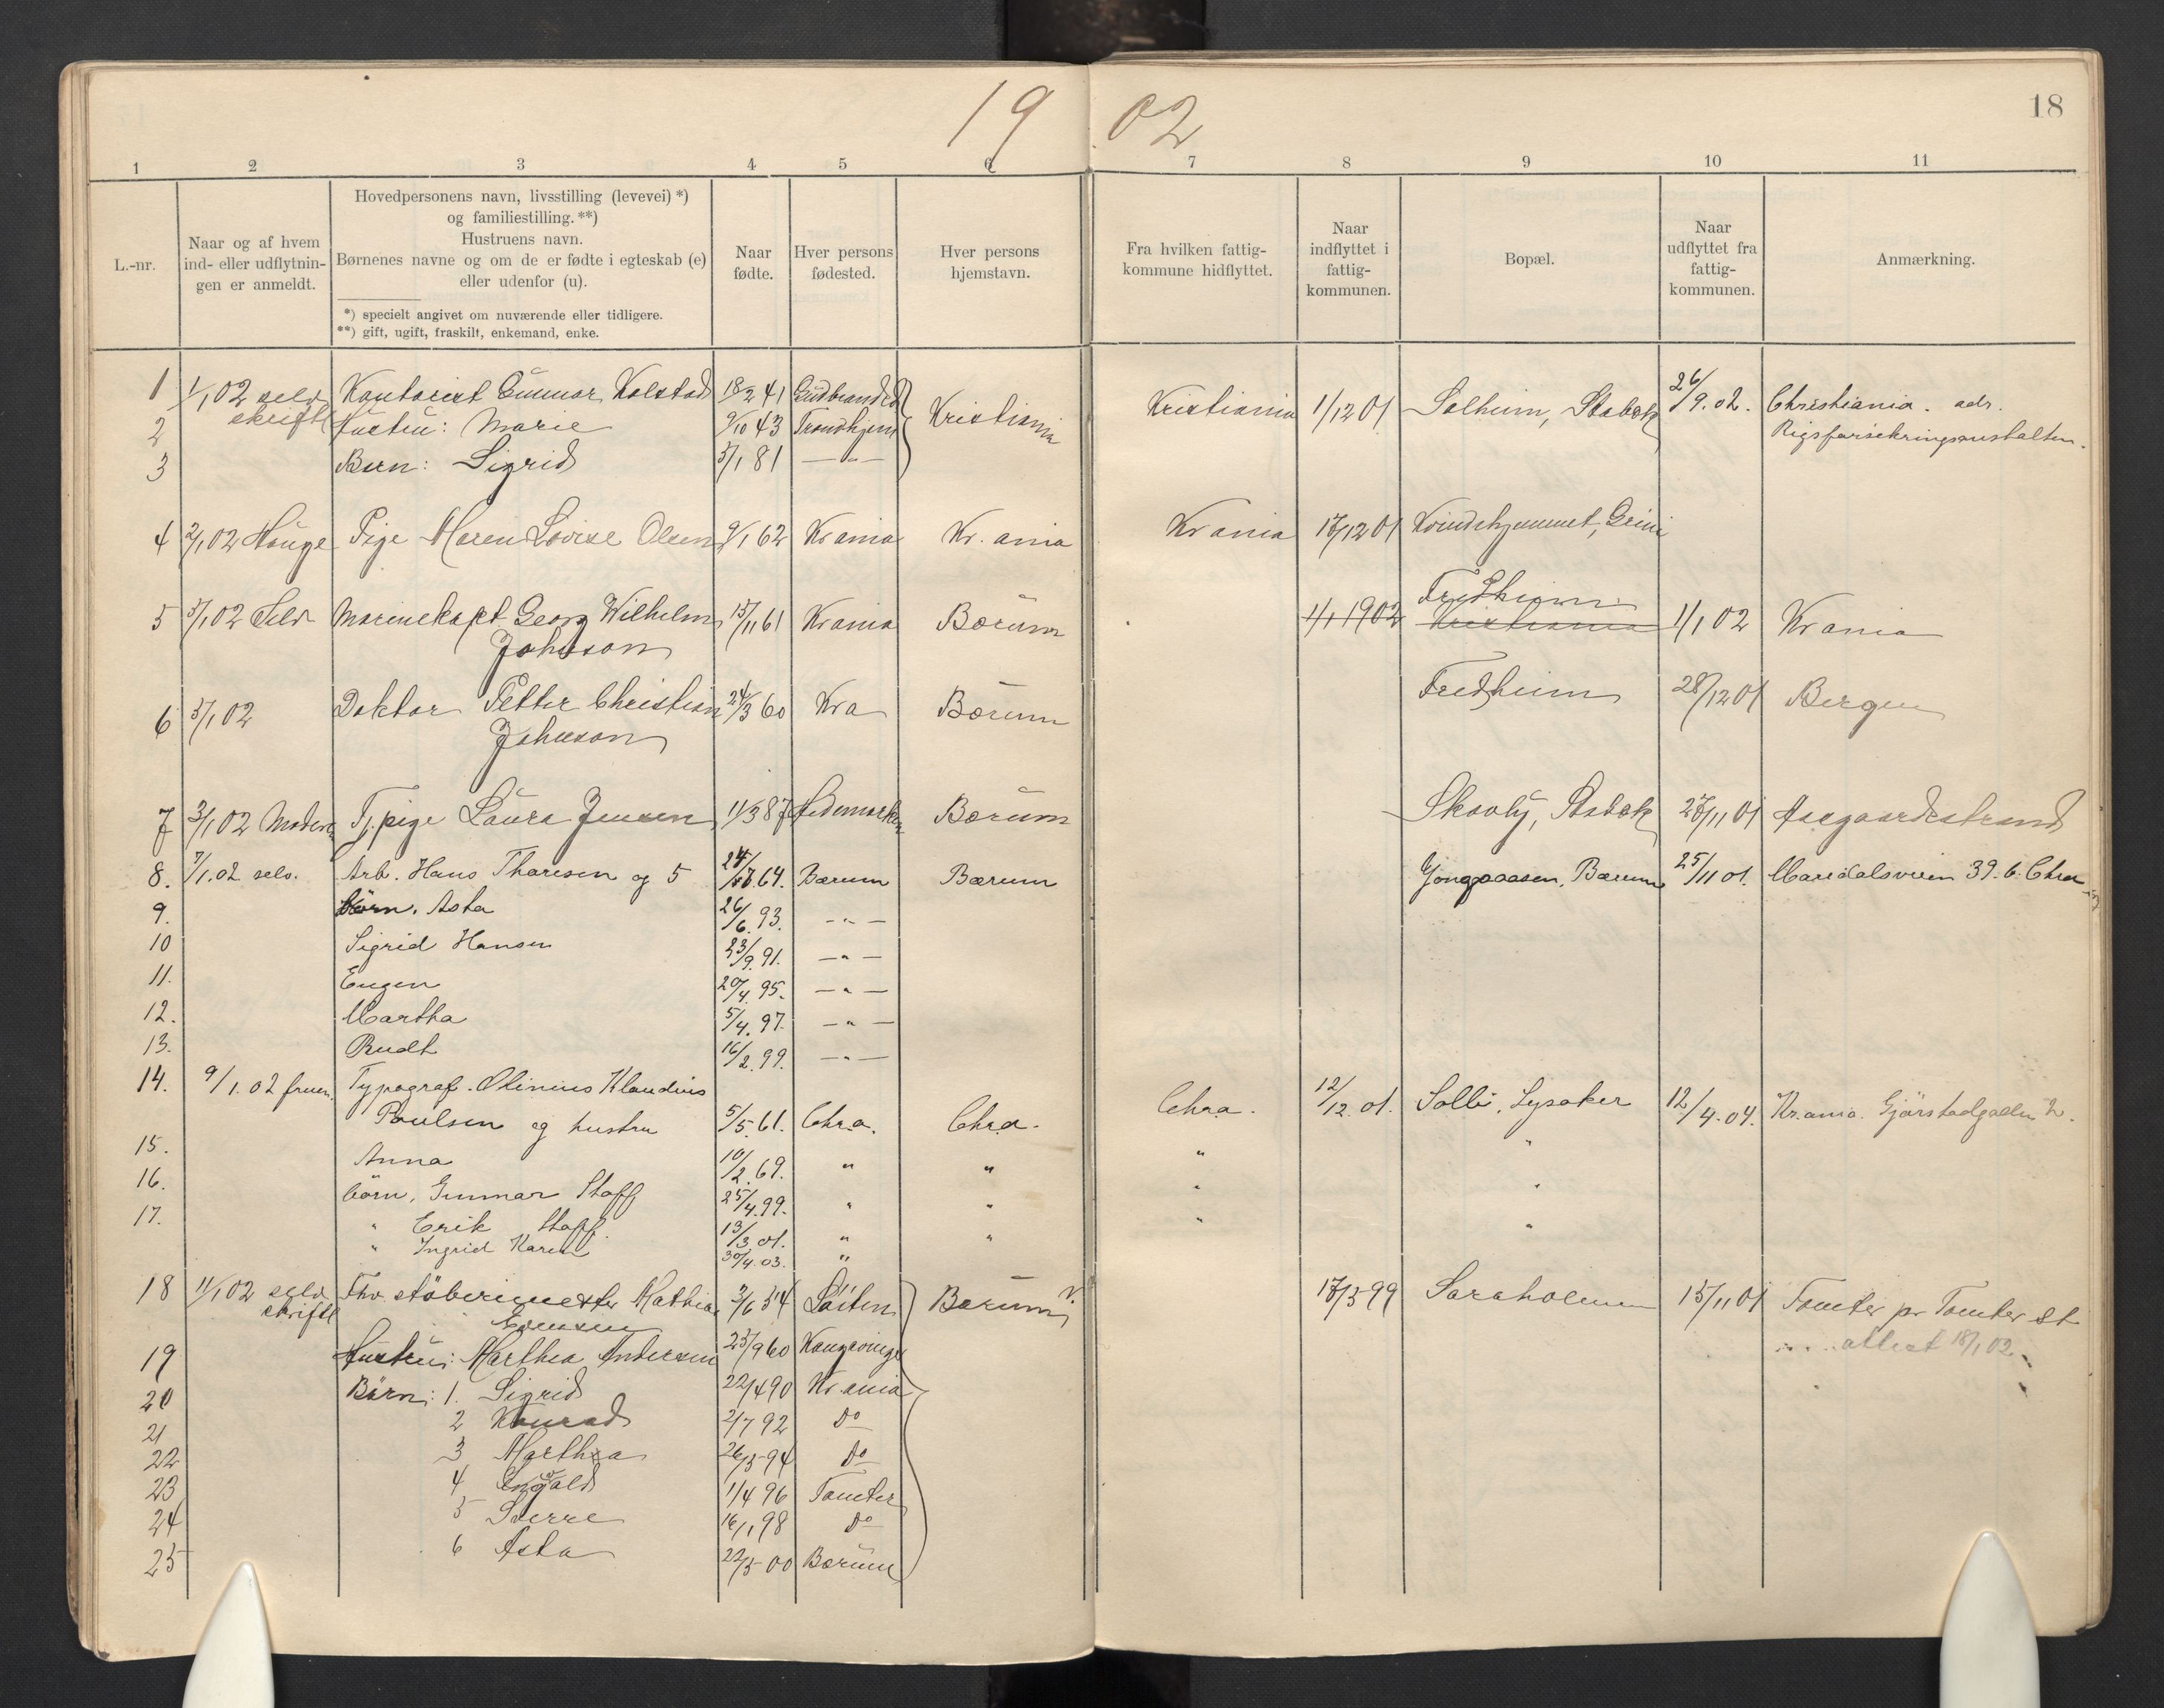 1902
18
1 2 3 4 5 6 7 8 9 10 11
L.-nr.
Naar og af hvem
ind- eller udflytnin-
gen er anmeldt.
Hovedpersonens navn, livsstilling (levevei) *)
og familiestilling. **)
Hustruens navn.
Børnenes navne og om de er fødte i egteskab (e)
eller udenfor (u).
*) specielt angivet om nuværende eller tidligere.
**) gift, ugift, fraskilt, enkemand, enke.
Naar
fødte.
Hver persons
fødested.
Hver persons
hjemstavn.
Fra hvilken fattig-
kommune hidflyttet.
Naar
indflyttet i
fattig-
kommunen.
Bopæl.
Naar
udflyttet fra
fattig-
kommunen.
Anmærkning.
1 1/1 02 selv Kontorist Gunnar Kolstad 18/2 41 Gudbrandsd Kristiania Kristiania 1/12 01 Solheim, Stabæk 26/9. 02. Christiania. adr.
skriftl Rigsforsikringsanstalten.
2 Hustru: Marie 9/10 43 Trondhjem
3 Barn: Sigrid 5/1 81 — " —
4 2/1 02 Hauge Pige Maren Lovise Olsen 9/1 62 Kr ania Kr. ania Kr ania 17/12 01 Kvindehjemmet, Grini
5 3/1 02 Selv Marinekapt Georg Wilhelm 15/11 61 Kr ania Bærum 1/1 1902 Fredheim Kristiania 1/1 02 Kr ania
Johnson
6 3/1 02 Doktor Petter Christian 24/3 60 Kra Bærum Fredheim 28/12 01 Bergen
Johnson
7 3/1 02 Moderen Tj. pige Laura Jensen 11/3 87 Hedemarken Bærum Skovly, Stabæk 27/11 01 Aasgaardstrand
8. 7/1. 02 selv. Arb. Hans Thoresen og 5 64. Bærum Bærum Bærum 25/11 01. Maridalsveien 39. b. Chra
9. børn. Asta 26/6. 93. — " —
10 Sigrid Hansen 23/9. 91. — " —
11. Eugen 20/4. 95. — " —
12. Martha 5/4. 97. — " —
13. Rudt 16/2. 99. — " —
14. 9/1. 02 fruen. Typograf. Olinius Klaudius
Paulsen og hustru 5/5. 61. Chra. Chra. Chra. 12/12. 01. Solli, Lysaker 12/4. 04. Kr. ania. Gjørstadgaden 2.
15. Anna 10/2. 69. " " " "
16. børn, Gunnar Staff 25/4. 99. " " " "
17. " Erik Staff. 13/3. 01. " " " "
" Ingrid Karen 30/4. 03. "
18 11/1 02 selv Fhv. støberimester Mathias 2/6 54 Løiten Bærum ? 17/3 99 Saraholmen 15/11 01 Tomter pr Tomter st
skriftl Evensen attest 18/1 02
19 Hustru: Marthea Andersen 25/9 60 Kongsvinger
20 Børn: 1. Sigrid 22/4 90 Kr. ania
21 2 Konrad 2/7 92 Do
22 3 Marthea 26/3 94 Do
23 4 Ingvald 1/4 96 Tomter
24 5 Sverre 16/1 98 Do
25 6 Asta 22/5 00 Bærum